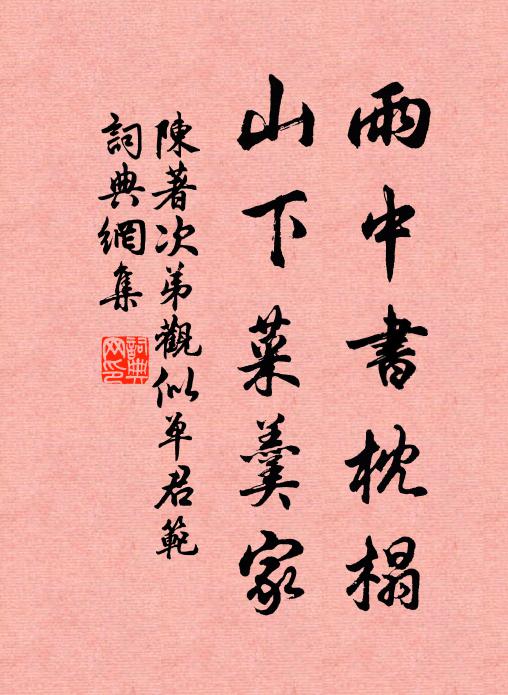 雨中書枕榻
山下菜羹家
陳著次弟觀似单君範
詞典網集
詞典
网印